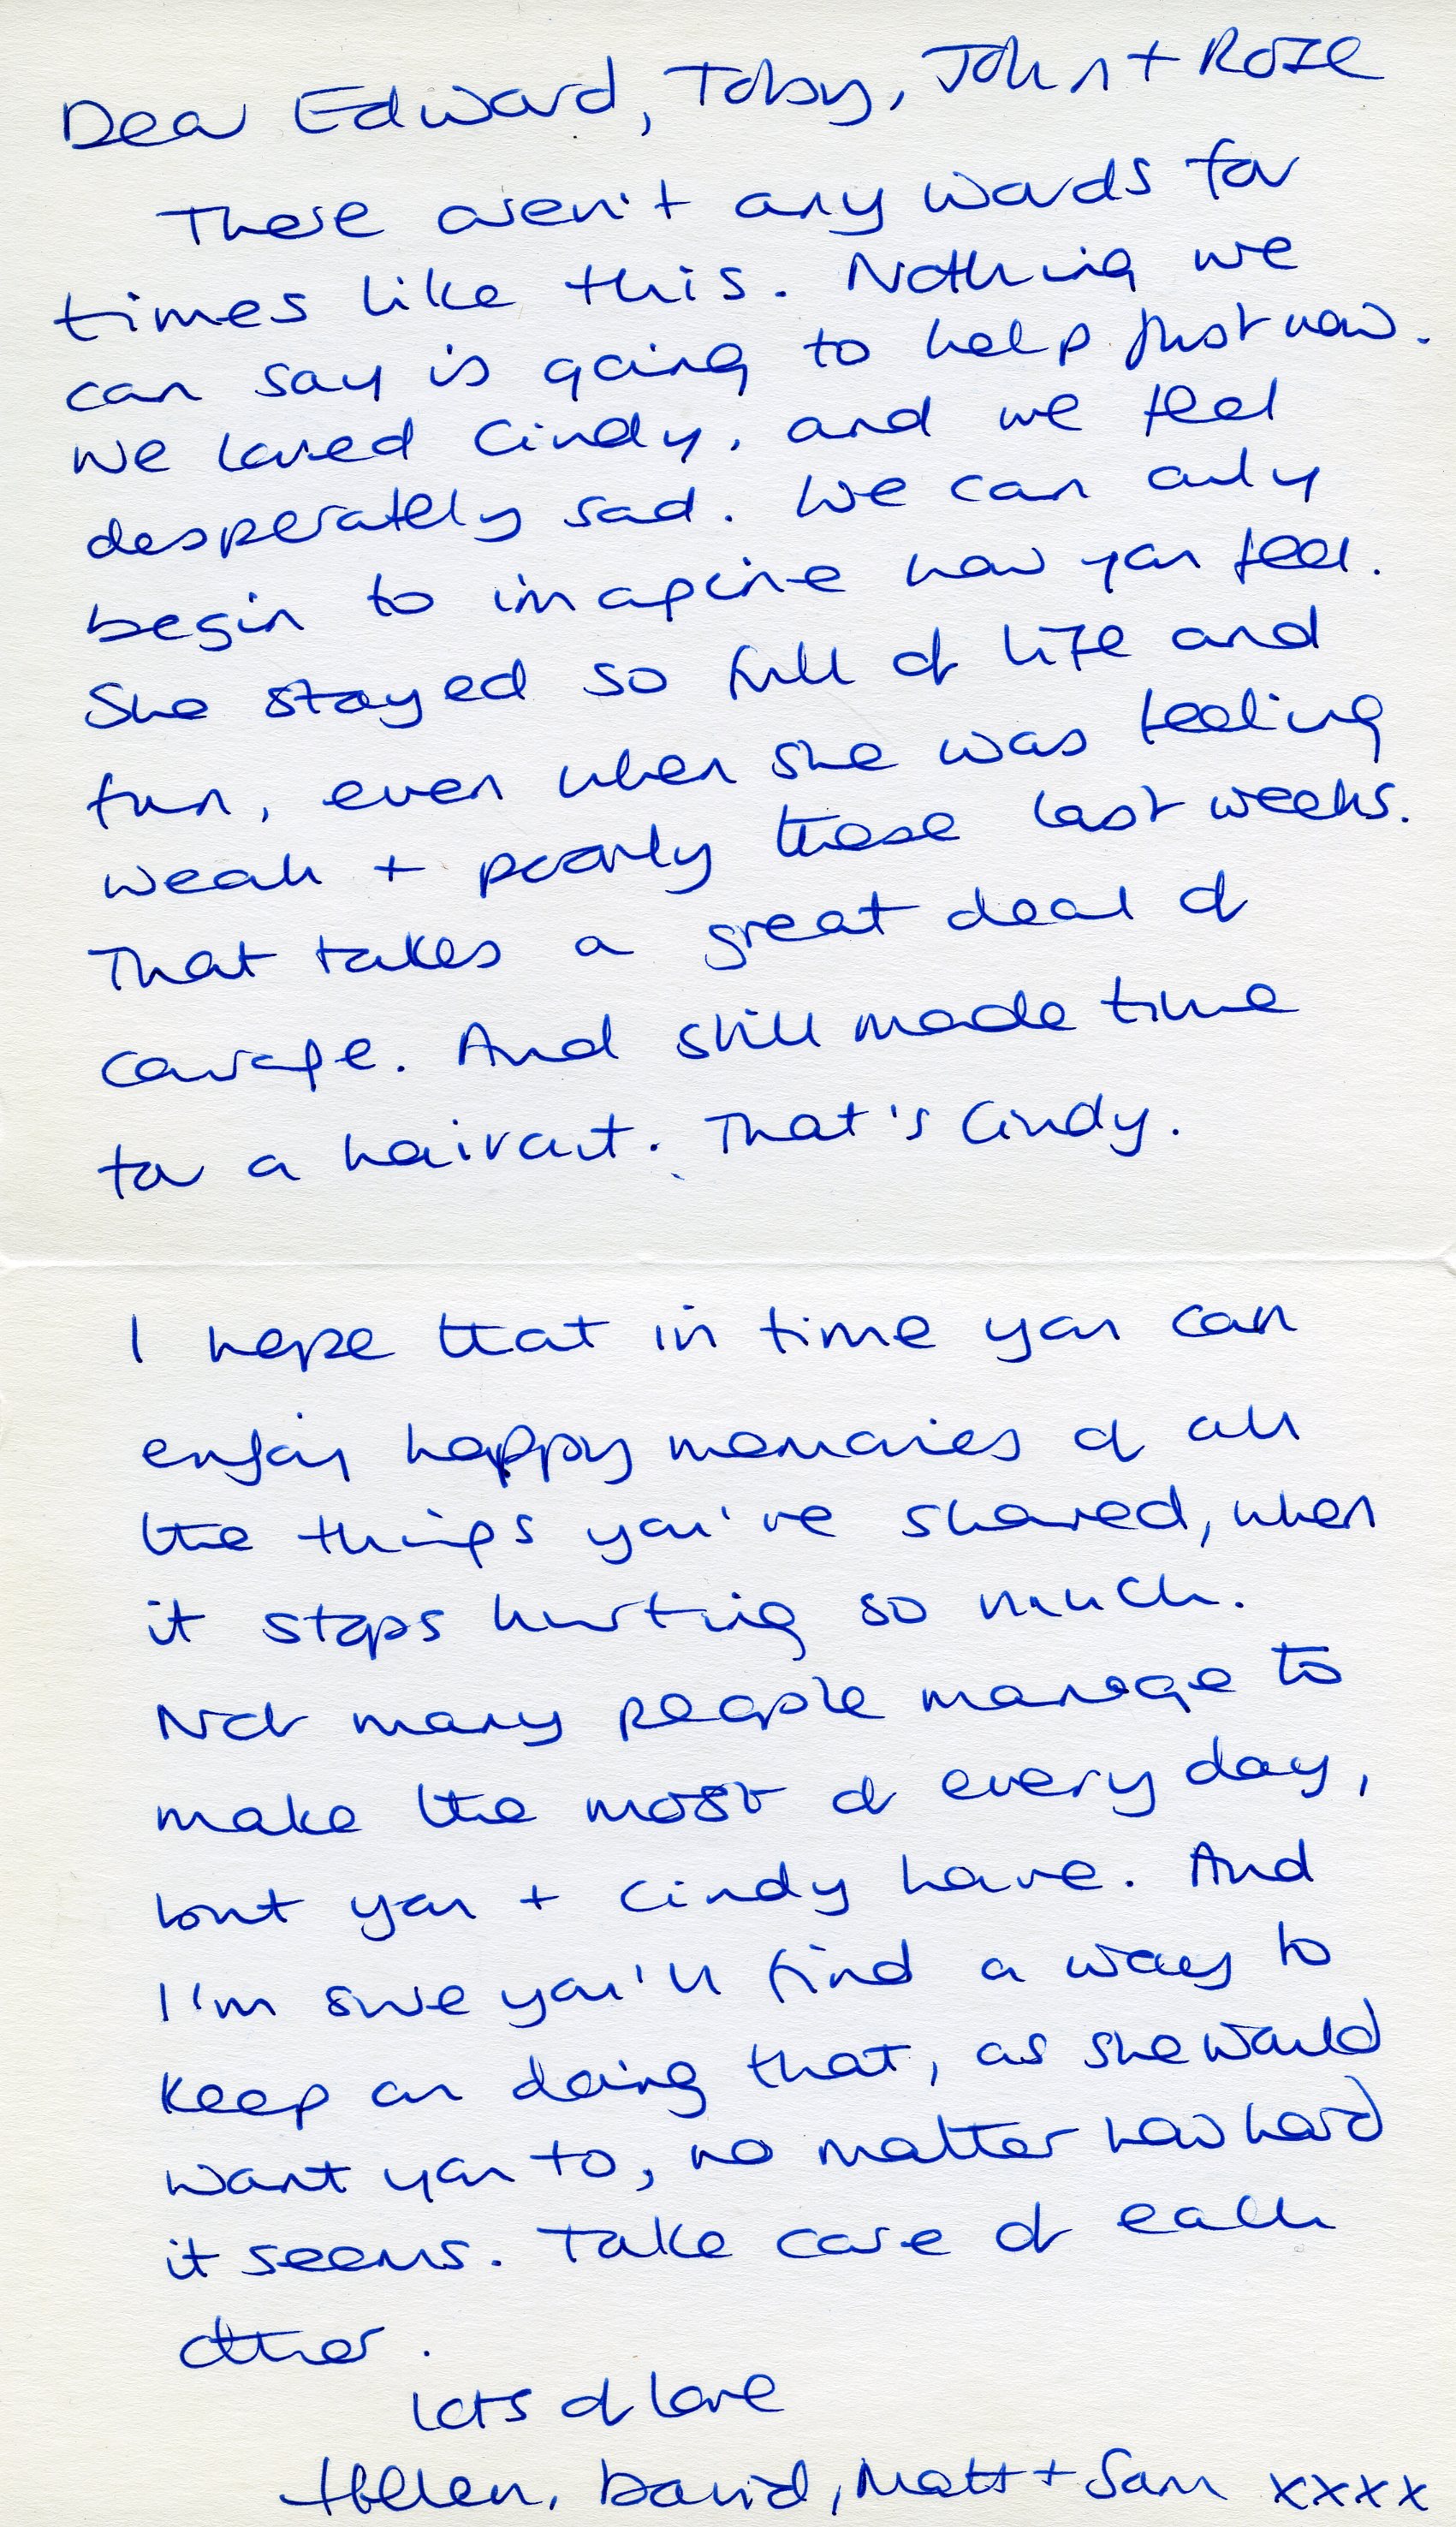 Dear Edward, Toby, John + Rose
There aren't any words for
times like this. Nothing we
can say is going to help just now.
We loved Cindy, and we feel
desperately sad. We can only
begin to imagine how you feel.
She stayed so full of life and
fun, even when she was feeling
weak + poorly these last weeks.
That takes a great deal of
courage. And still made time
for a haircut. That's Cindy.
I hope that in time you can
enjoy happy memories of all
the things you've shared, when
it stops hurting so much.
Not many people manage to
make the most of every day,
but you + Cindy have. And
I'm sure you'll find a way to
keep on doing that, as she would
want you to, no matter how hard
it seems. Take care of each
other.
Lots of love
Helen, David, Matt + Sam xxxx